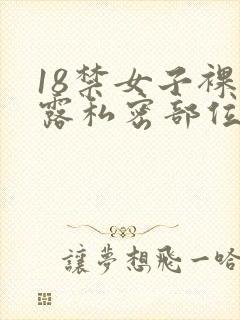 18禁女子裸
露私密部位
讓夢想飛一哈